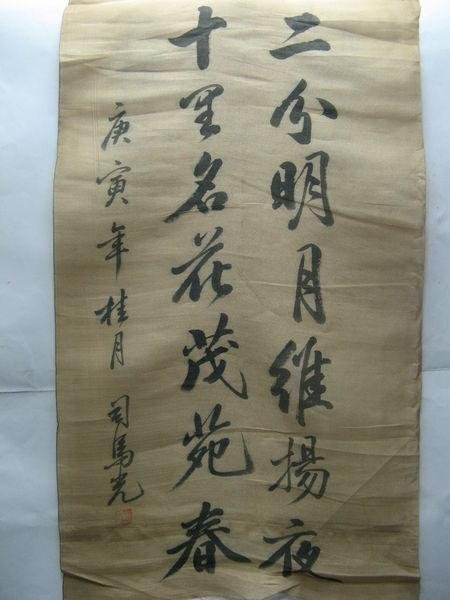 二分明月維揚夜
十里名花茂苑春
庚寅年桂月 司馬光